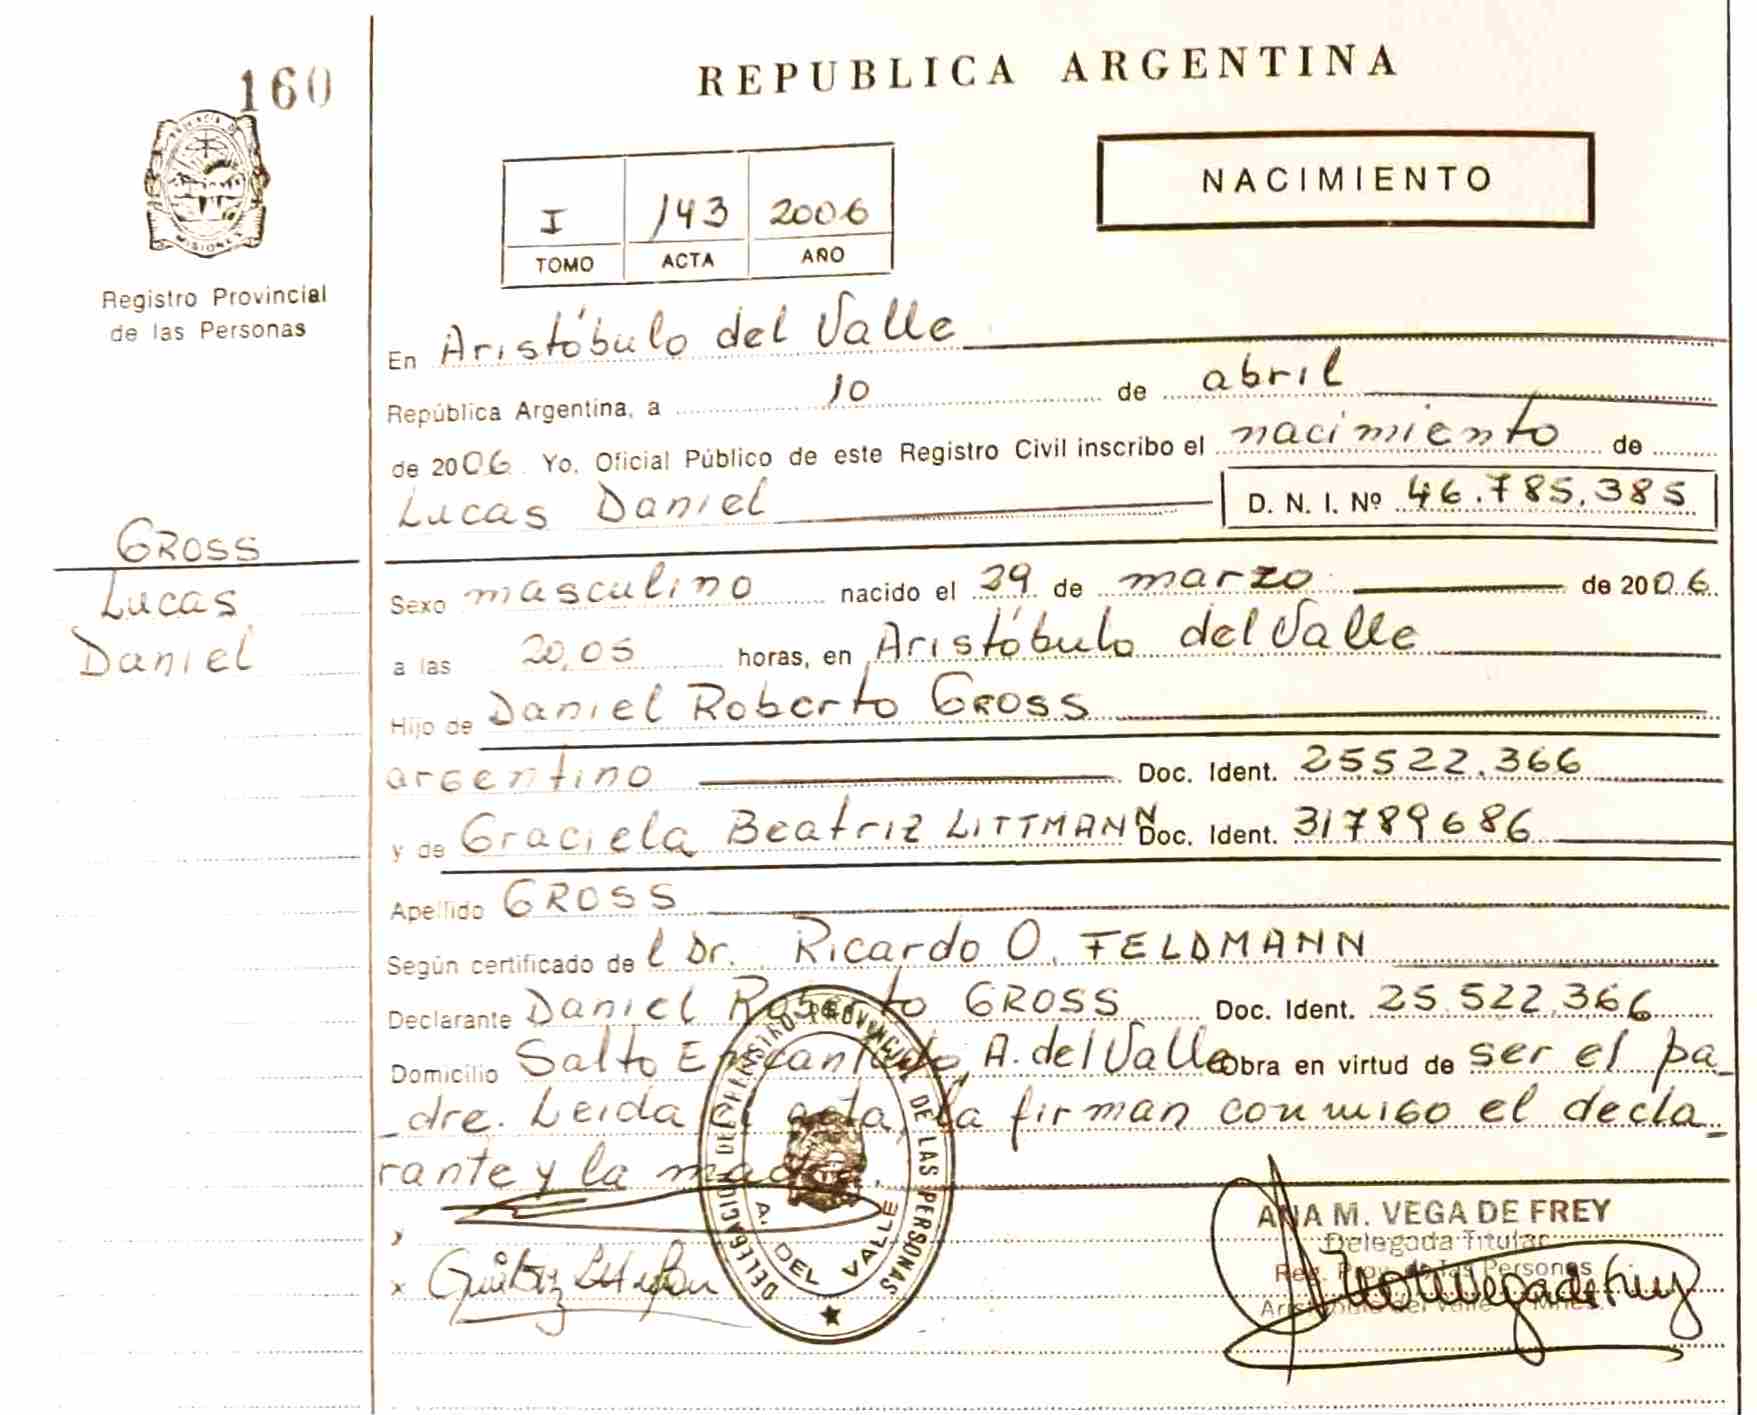 160
PROVINCIA DE MISIONES
Registro Provincial
de las Personas
REPUBLICA ARGENTINA
NACIMIENTO
I 143 2006
TOMO ACTA AÑO
En Aristóbulo del Valle
República Argentina, a 10 de abril
de 2006. Yo, Oficial Público de este Registro Civil inscribo el nacimiento de
Lucas Daniel D. N. I. Nº 46.785.385
GROSS
Lucas
Daniel
Sexo masculino nacido el 29 de marzo de 2006.
a las 20,05 horas, en Aristóbulo del Valle
Hijo de Daniel Roberto GROSS
argentino Doc. Ident. 25522.366
y de Graciela Beatriz LITTMANN Doc. Ident. 31789686
Apellido GROSS
Según certificado del Dr. Ricardo O. FELDMANN
Declarante Daniel Roberto GROSS Doc. Ident. 25.522.366
Domicilio Salto Encantado, A. del Valle Obra en virtud de ser el pa_
_dre. Leida el acta, la firman conmigo el decla_
rante y la madre.
DELEGACION DEL REGISTRO PROVINCIAL DE LAS PERSONAS
A. DEL VALLE
x
x
ANA M. VEGA DE FREY
Delegada Titular
Reg. Prov. de las Personas
Aristóbulo del Valle - Mnes.